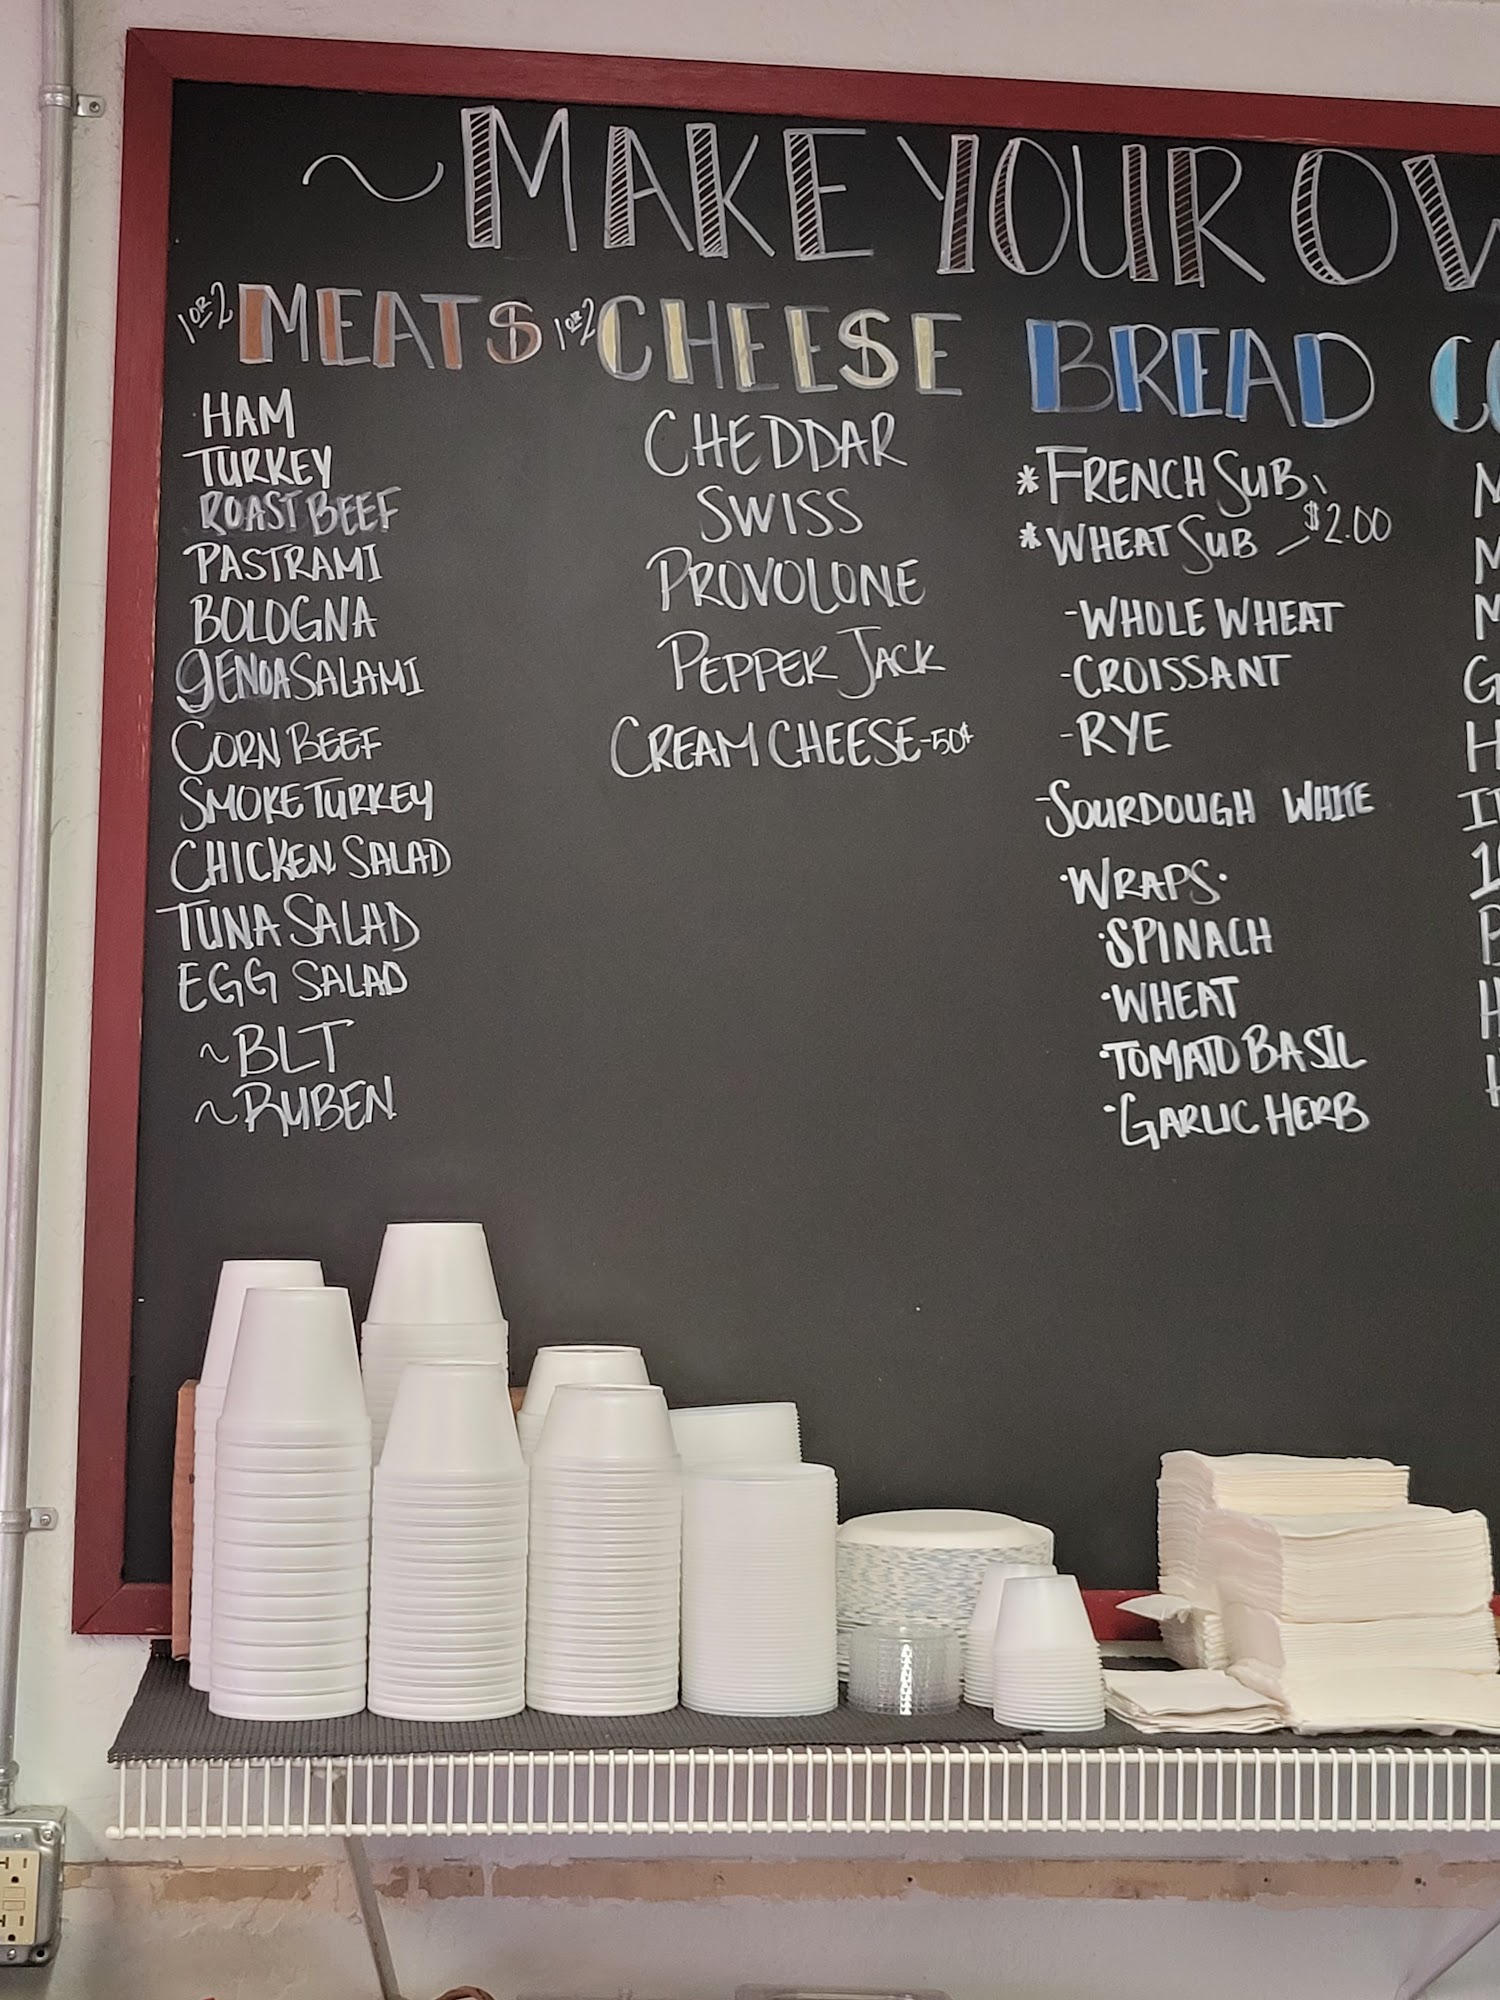 ~MAKE YOUR OW
1 OR 2 MEATS
HAM
TURKEY
ROAST BEEF
PASTRAMI
BOLOGNA
GENOA SALAMI
CORN BEEF
SMOKE TURKEY
CHICKEN SALAD
TUNA SALAD
EGG SALAD
~BLT
~RUBEN
1 OR 2 CHEESE
CHEDDAR
SWISS
PROVOLONE
PEPPER JACK
CREAM CHEESE-50¢
BREAD
*FRENCH SUB
*WHEAT SUB - $2.00
-WHOLE WHEAT
-CROISSANT
-RYE
-SOURDOUGH WHITE
·WRAPS·
·SPINACH
·WHEAT
·TOMATO BASIL
·GARLIC HERB